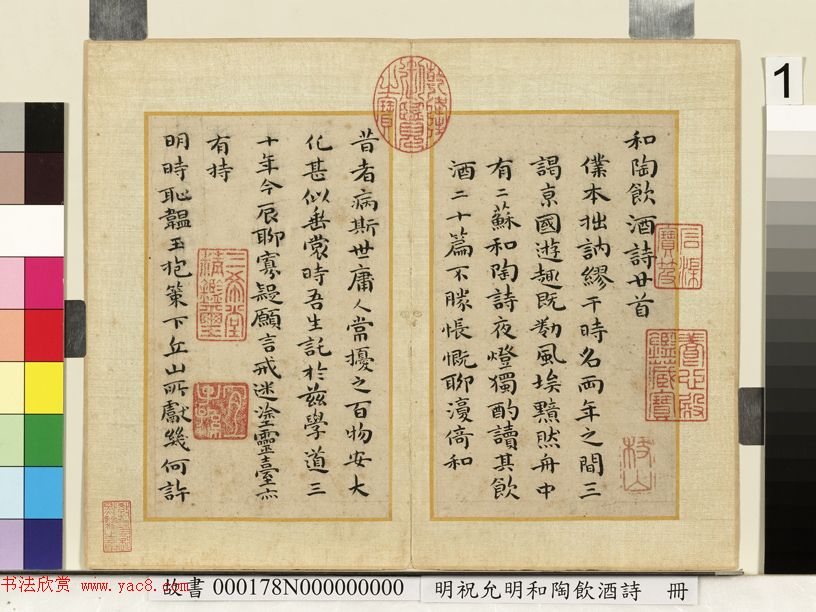 和陶飲酒詩廿首
僕本拙訥繆干時名兩年之間三
謁京國遊趣既尠風埃黯然舟中
有二蘇和陶詩夜燈獨酌讀其飲
酒二十篇不勝悵慨聊復倚和
昔者病斯世庸人常擾之百物安大
化甚似垂裳時吾生託於茲學道三
十年今辰聊寡疑願言戒迷塗靈臺亦
有持
明時恥韞玉抱策下丘山所獻幾何許
乾隆御覽之寶
三希堂精鑑璽
宜子孫
石渠寶笈
養心殿鑑藏寶
枝山
1
书法欣赏 www.yac8.com
故書 000178N000000000
明祝允明和陶飲酒詩 冊